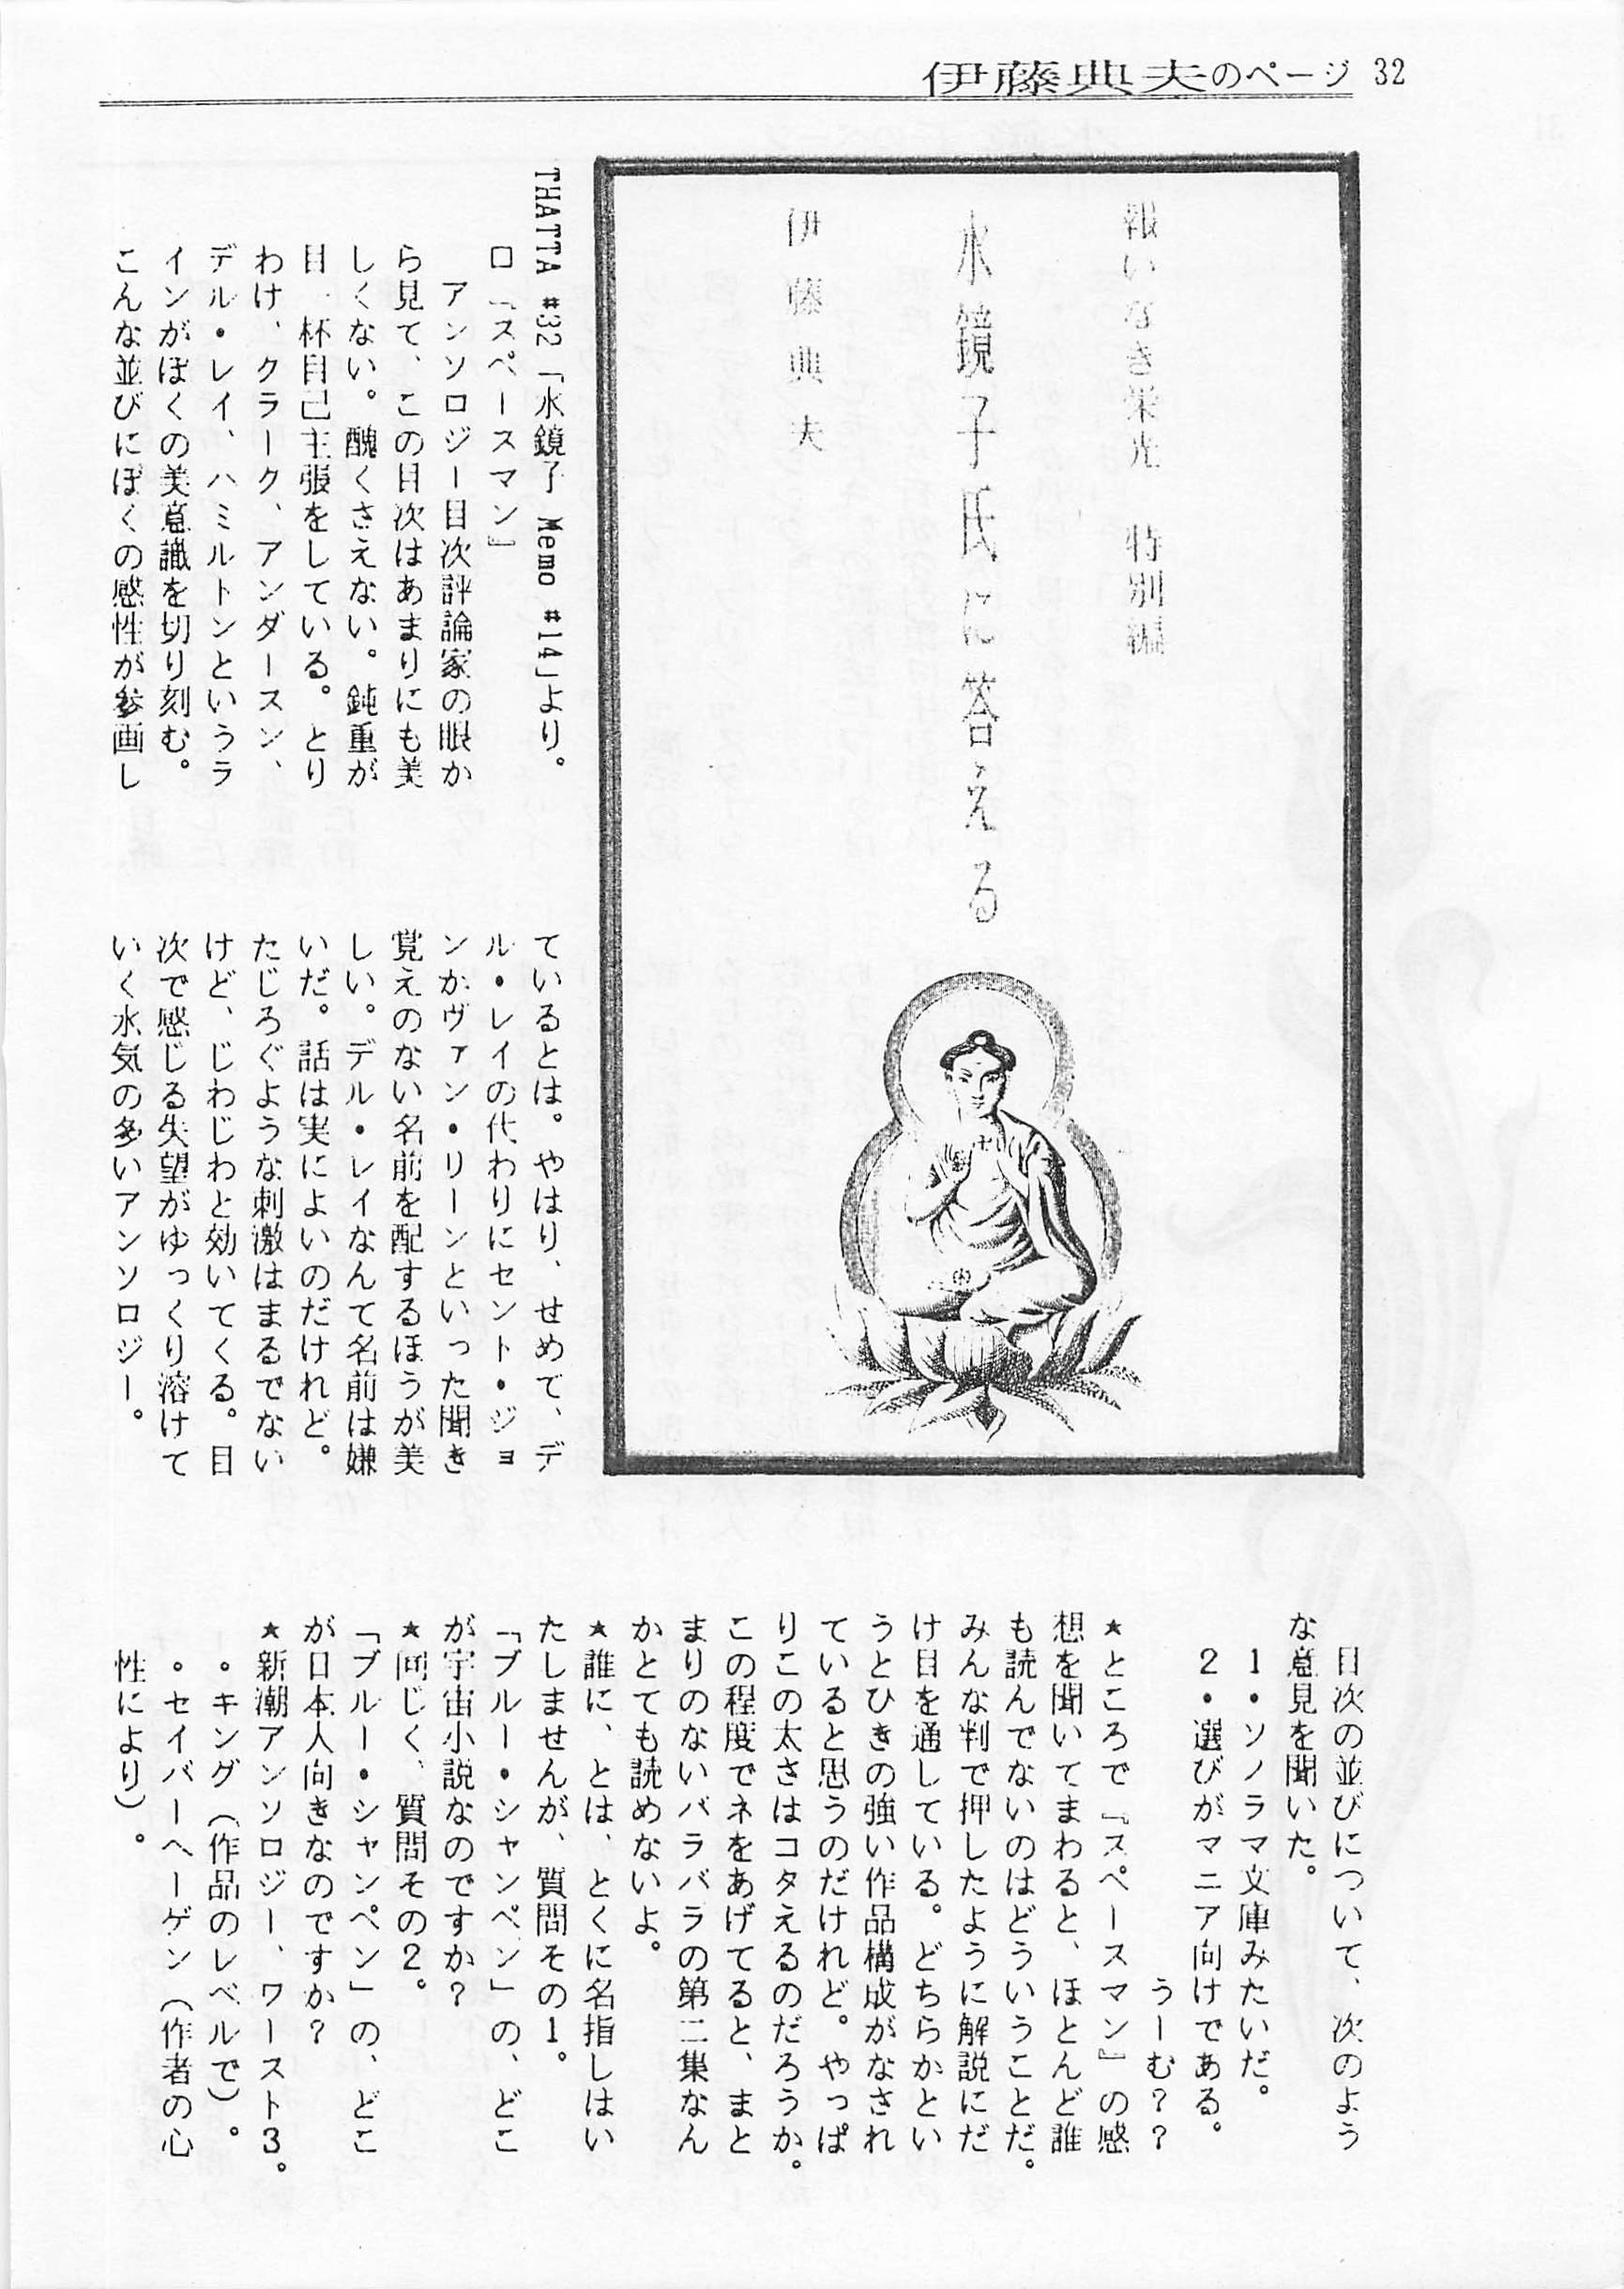 伊藤典夫のページ 32
報いなき栄光 特別編
水鏡子氏に答える
伊藤典夫
THATTA #32「水鏡子 Memo #14」より。
ロ『スペースマン』
アンソロジー目次評論家の眼か
ら見て、この目次はあまりにも美
しくない。醜くさえない。鈍重が
目一杯自己主張をしている。とり
わけ、クラーク、アンダースン、
デル・レイ、ハミルトンというラ
インがぼくの美意識を切り刻む。
こんな並びにぼくの感性が参画し
ているとは。やはり、せめて、デ
ル・レイの代わりにセント・ジョ
ンかヴァン・リーンといった聞き
覚えのない名前を配するほうが美
しい。デル・レイなんて名前は嫌
いだ。話は実によいのだけれど。
たじろぐような刺激はまるでない
けど、じわじわと効いてくる。目
次で感じる失望がゆっくり溶けて
いく水気の多いアンソロジー。
目次の並びについて、次のよう
な意見を聞いた。
1・ソノラマ文庫みたいだ。
2・選びがマニア向けである。
うーむ??
★ところで『スペースマン』の感
想を聞いてまわると、ほとんど誰
も読んでないのはどういうことだ。
みんな判で押したように解説にだ
け目を通している。どちらかとい
うとひきの強い作品構成がなされ
ていると思うのだけれど。やっぱ
りこの太さはコタえるのだろうか。
この程度でネをあげてると、まと
まりのないバラバラの第二集なん
かとても読めないよ。
★誰に、とは、とくに名指しはい
たしませんが、質問その1。
「ブルー・シャンペン」の、どこ
が宇宙小説なのですか?
★同じく、質問その2。
「ブルー・シャンペン」の、どこ
が日本人向きなのですか?
★新潮アンソロジー、ワースト3。
・キング（作品のレベルで）。
・セイバーヘーゲン（作者の心
性により）。